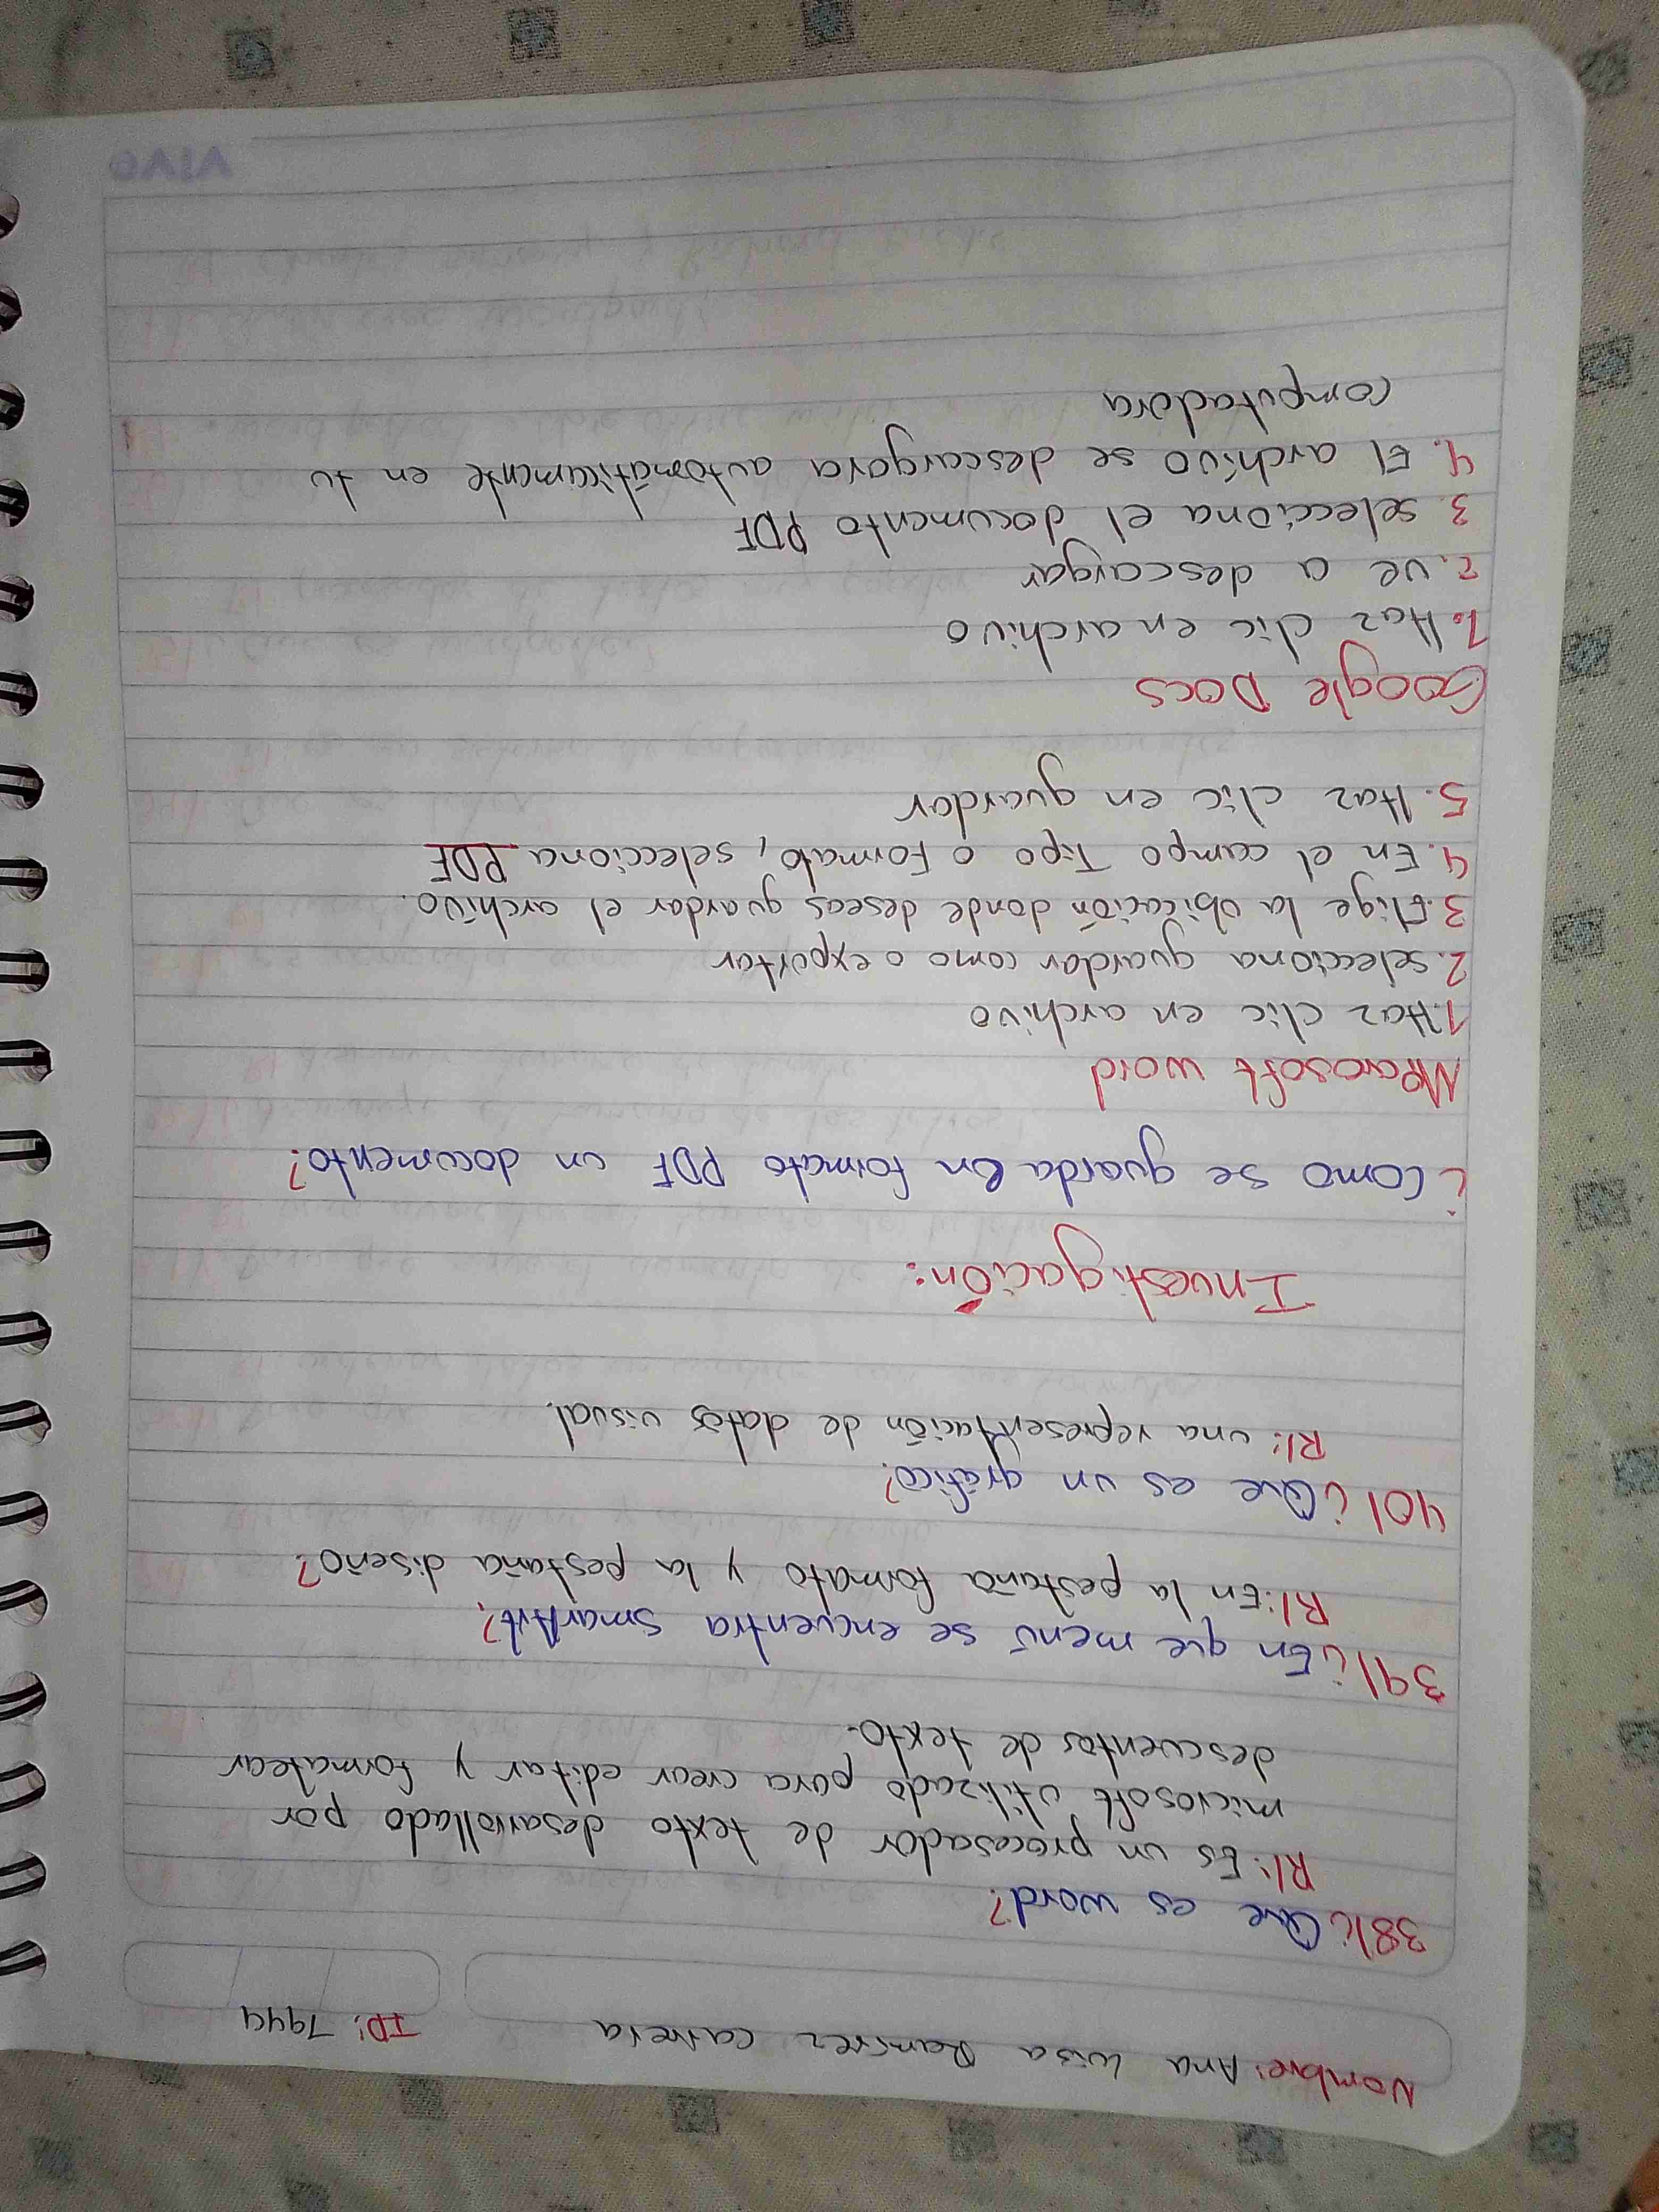 Nombre: Ana Luisa Ramirez Carrera ID: 7944
38/¿Que es word?
R/: Es un procesador de texto desarrollado por
microsoft utilizado para crear editar y formatear
descuentos de texto.
39/¿En que menú se encuentra SmartArt?
R/: En la pestaña formato y la pestaña diseño?
40/¿Que es un gráfico?
R/: una representación de datos visual.
Investigación:
¿Como se guarda en formato PDF un documento?
Microsoft word
1. Haz clic en archivo
2. selecciona guardar como o exportar
3. Elige la obicación donde deseas guardar el archivo.
4. En el campo Tipo o Formato, selecciona PDF
5. Haz clic en guardar
Google Docs
1. Haz clic en archivo
2. ve a descargar
3. selecciona el documento PDF
4. El archivo se descargara automáticamente en tu
computadora